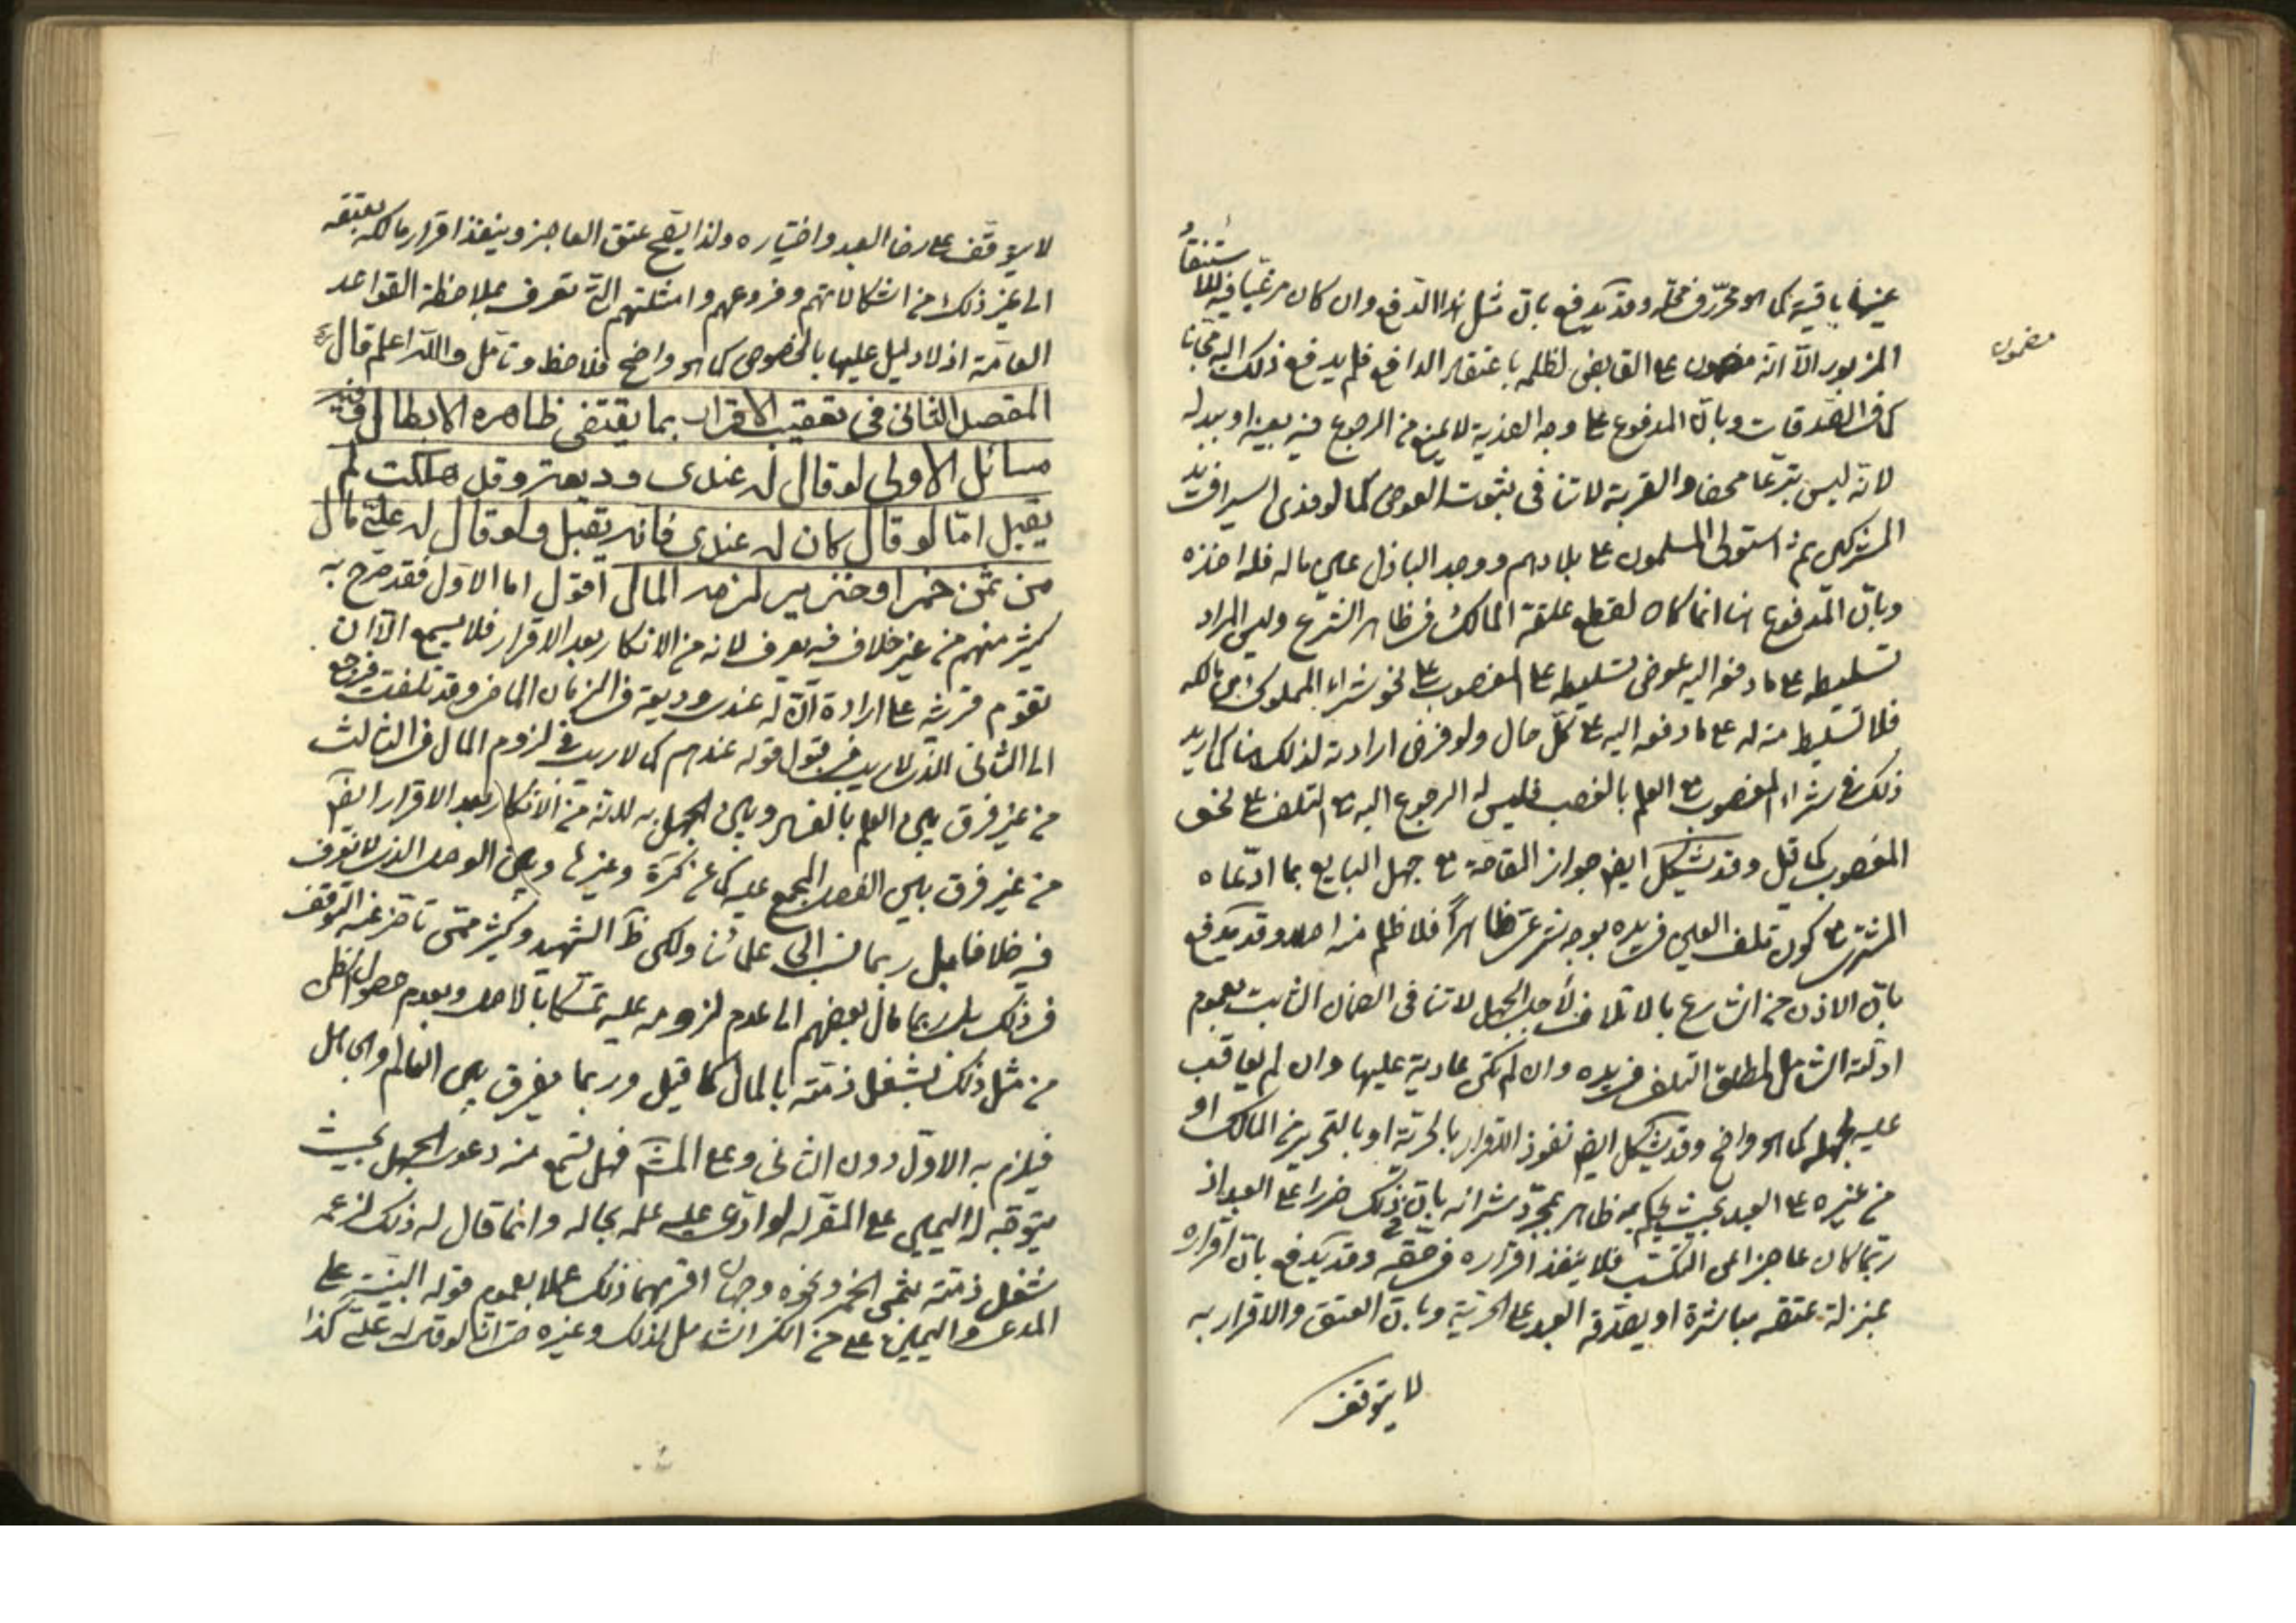 عينها باقية كما هو محرّر في محلّه وقد يدفع بان مثل هذا الدفع وان كان مرغبا فيه للاستنقاذ
المزبور الّا انّه مضمون على القابض لظلمه باعتقاد الدافع فلم يدفع ذلك اليه مجّانا
مضمون
كما في الصّدقات وبانّ المدفوع على وجه الفدية لا يمنع من الرجوع فيه بعينه او ببدله
لانّه ليس تبرعا محضا والقربة لا تنافي ثبوت العوض كما لو فدى اسيرا في يد
المشركين ثم استولى المسلمون على بلادهم ووجد الباذل عين ماله فله اخذه
وبانّ المدفوع هنا انما كان لقطع علقة المالك في ظاهر الشرع وليس المراد
تسليطه على ما دفعه اليه عوض تسليطه على المغصوب على نحو شراء المملوك من مالكه
فلا تسليط منه له على ما دفعه اليه على كلّ حال ولو فرض ارادته لذلك هنا كما يريد
ذلك في شراء المغصوب مع العلم بالغصب فليس له الرجوع اليه مع التلف على نحو
المغصوب كما قيل وقد يشكل ايضا جواز المقاصّة مع جهل البايع بما ادّعاه
المشترى مع كون تلف العين في يده بوجه شرعىّ ظاهراً فلا ظلم منه اصلا وقد يدفع
بانّ الاذن من الشارع بالاتلاف لأجل الجهل لا تنافي الضمان الثابت بعموم
ادلّته الشامل لمطلق التلف في يده وان لم تكن عادية عليها وان لم يعاقب
عليه لجهله كما هو واضح وقد يشكل ايضا نفوذ الاقرار بالحرّية او بالتحرير من المالك او
من غيره على العبد بحيث يحكم به ظاهرا بمجرّد شرائه بانّ في ذلك ضررا على العبد اذ
ربّما كان عاجزا عن التكسّب فلا ينفذ اقراره في حقّه وقد يدفع بانّ اقراره
بمنزلة عتقه مباشرة او يصدّقه العبد على الحرّية وبانّ العتق والاقرار به
لا يتوقف
لا يتوقف على رضا العبد واختياره ولذا يصحّ عتق العاجز وينفذ اقرار مالكه بعتقه
الى غير ذلك من اشكالاتهم وفروعهم وامثلتهم الّتى تعرف بملاحظة القواعد
العامّة اذ لا دليل عليها بالخصوص كما هو واضح فلاحظ وتامّل واللّه اعلم قال
المقصد الثاني في تعقيب الاقرار بما يقتضى ظاهره الابطال وفيه
مسائل الاولى لو قال له عندى وديعة وقد هلكت لم
يقبل امّا لو قال كان له عندى فانه يقبل ولو قال له علىّ مال
من ثمن خمر او خنزير لزمه المال اقول اما الاول فقد صرّح به
كثير منهم من غير خلاف فيه يعرف لانه من الانكار بعد الاقرار فلا يسمع الّا ان
تقوم قرينة على ارادة انّ له عندى وديعة في الزمان الماضى وقد تلفت فيرجع
الى الثانى الّذى لا ريب في قبول قوله عندهم كما لا ريب في لزوم المال في الثالث
من غير فرق بين العلم بالفساد وبين الجهل به لانّه من الانكار بعد الاقرار ايضا
من غير فرق بين الفصل المجمع عليه كما عن تذكرة وغيرها وبين الوصل الذى لا نعرف
فيه خلافا بل ربما نسب الى علمائنا ولكن ظ الشهيد وكثير ممّن تأخّر عنه التوقّف
في ذلك بل ربما مال بعضهم الى عدم لزومه عليه تمسّكا بالاصل وبعدم حصول الظن
من مثل ذلك بشغل ذمّته بالمال كما قيل وربما يفرق بين العالم والجاهل
فيلزم به الاوّل دون الثانى وعلى المش فهل تسمع منه دعوى الجهل بحيث
يتوجّه له اليمين على المقرّ له لو ادّعى عليه علمه بحاله وانما قال له ذلك لزعمه
شغل ذمّته بثمن الخمر ونحوه وجهان اقربهما ذلك عملا بعموم قوله البيّنة على
المدعى واليمين على من انكر الشامل لذلك وغيره حتى انّا لو قال له علىّ كذا